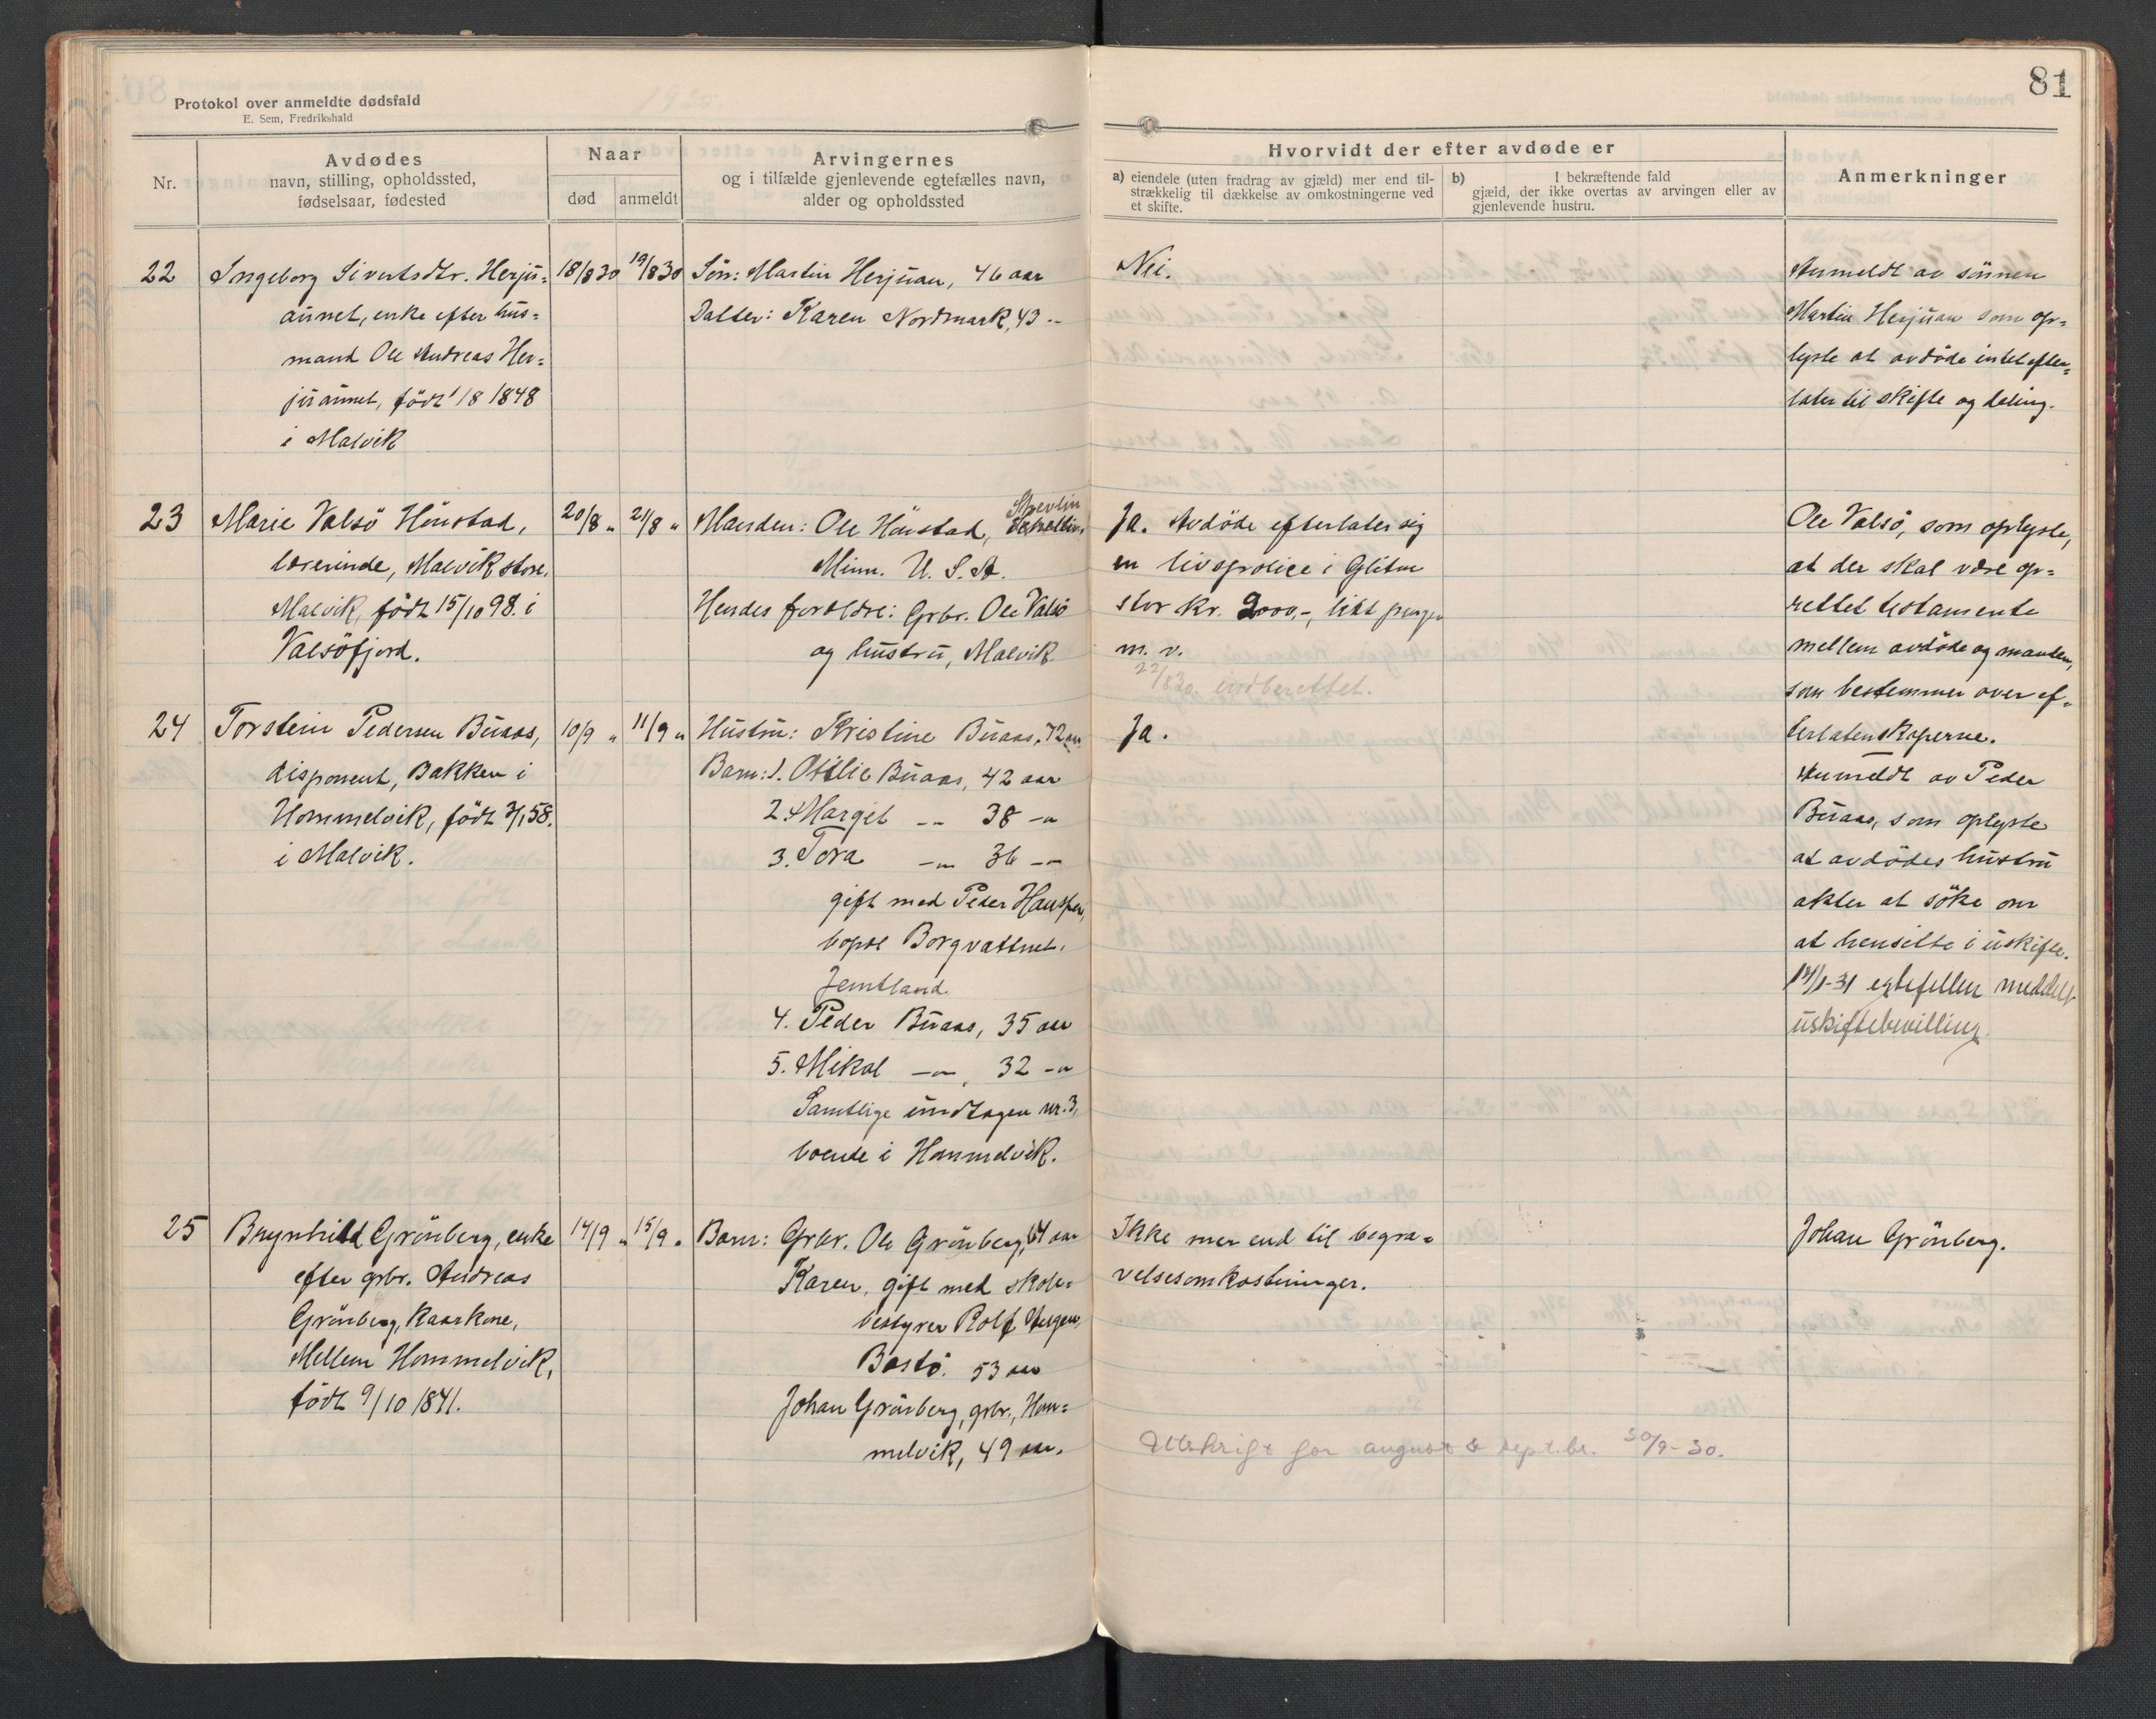 81
Protokol over anmeldte dødsfald
E. Sem, Fredrikshald
Nr.
Avdødes
navn, stilling, opholdssted,
fødselsaar, fødested
Naar
død
anmeldt
Arvingernes
og i tilfælde gjenlevende egtefælles navn,
alder og opholdssted
Hvorvidt der efter avdøde er
a) eiendele (uten fradrag av gjæld) mer end til-
strækkelig til dækkelse av omkostningerne ved
et skifte.
b) I bekræftende fald
gjæld, der ikke overtas av arvingen eller av
gjenlevende hustru.
Anmerkninger
22
Ingeborg Sivertsdtr. Herju=
aunet, enke efter hus=
mand Ole Andreas Her=
juaunet, født 1/8 1848
i Malvik
18/8 30
19/8 30
Søn: Martin Herjuan, 46 aar
Datter: Karen Nordmark, 43 --
Nei.
Anmeldt av sønnen
Martin Herjuan som op=
lyste at avdøde intet efter=
later til skifte og deling.
23
Marie Valsö Hönstad,
lærerinde, Malvik store,
Malvik, født 15/10 98. i
Valsöfjord.
20/8 "
21/8 "
Manden: Ole Hönstad,
Minn. U. S. A.
Hendes forældre: Grbr. Ole Valsö
og hustru, Malvik.
Ja. Avdøde efterlater sig
en livspolice i Glitne
stor kr. 2000,-, litt penger
m. v.
22/8 30. indberettet.
Ole Valsö, som oplyste,
at der skal være op=
rettet testamente
mellem avdøde og manden,
som bestemmer over ef=
terlatenskaperne.
24
Torstein Pedersen Buaas,
disponent, Bakken i
Hommelvik, født 3/1 58.
i Malvik.
10/9 "
11/9 "
Hustru: Kristine Buaas, 72 aar
Barn: 1. Ottilie Buaas, 42 aar
2. Margit -- 38 -"
3. Tora -"- 36 -"-
gift med Peder
bopæl Borgvattnet,
Jemtland.
4. Peder Buaas, 35 aar
5. Mikal -"-, 32 -"
Samtlige undtagen nr. 3,
boende i Hommelvik.
Ja.
Anmeldt av Peder
Buaas, som oplyste
at avdødes hustru
akter at söke om
at hensitte i uskifte.
14/1-31 egtefellen meddelt
uskiftebevilling.
25
Brynhild Grönberg, enke
efter grbr. Andreas
Grönberg, kaarkone,
Mellem Hommelvik,
født 9/10 1841.
14/9 "
15/9 "
Barn: Grbr. Ole Grönberg, 64 aar
Karen, gift med skole-
bestyrer Rolf
Bastö. 53 aar
Johan Grönberg, grbr., Hom=
melvik, 49 aar.
Ikke mer end til begra=
velsesomkostninger.
Johan Grönberg.
Utskrift for august & septbr. 30/9-30.